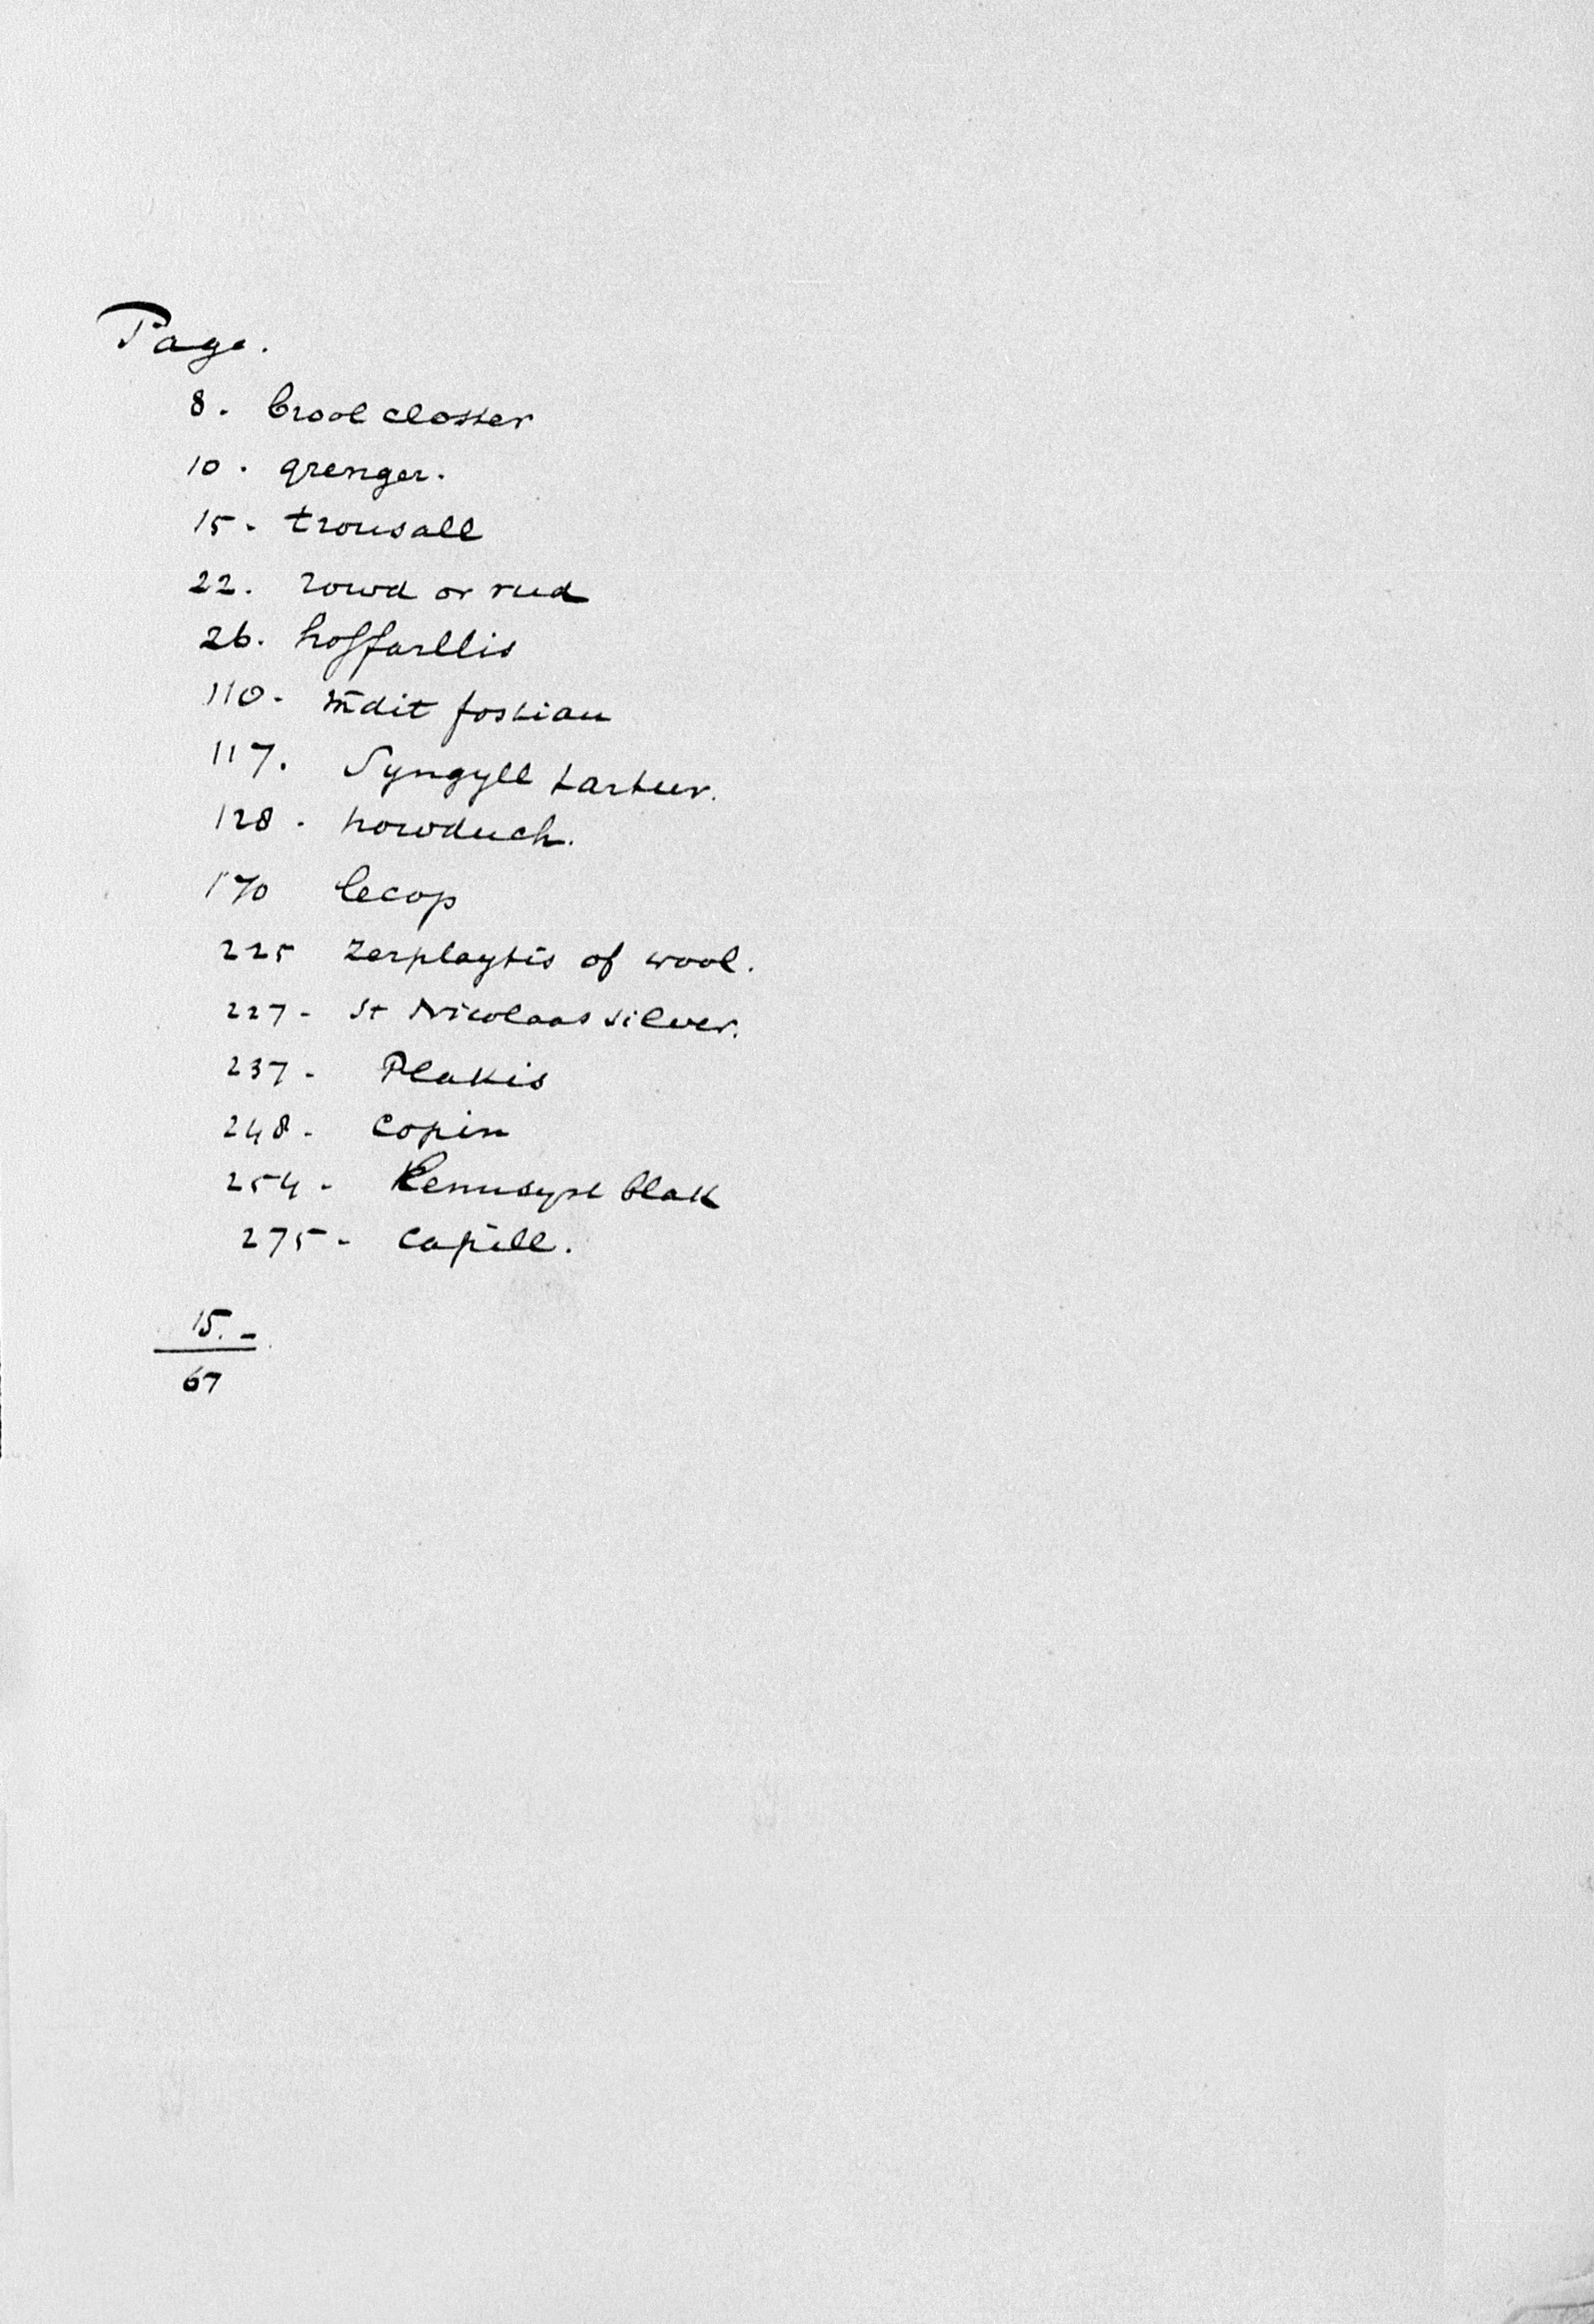 Page.
8. brool closter
10. grenger.
15- trousall
22. rowd or rud
26. hoffarllis
110- m̄dit fostian
117. Syngyll tartur.
128. howduch.
170 lecop
225 zerplaytis of wool.
227- St Nicolaas silver.
237- Plakis
248- Copin
254- Rennsyse blak
275- Capill.
15.-
67